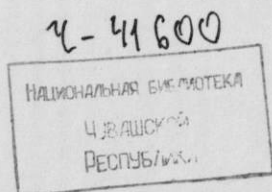 Ч-41600
НАЦИОНАЛЬНАЯ БИБЛИОТЕКА
ЧУВАШСКОЙ
РЕСПУБЛИКИ